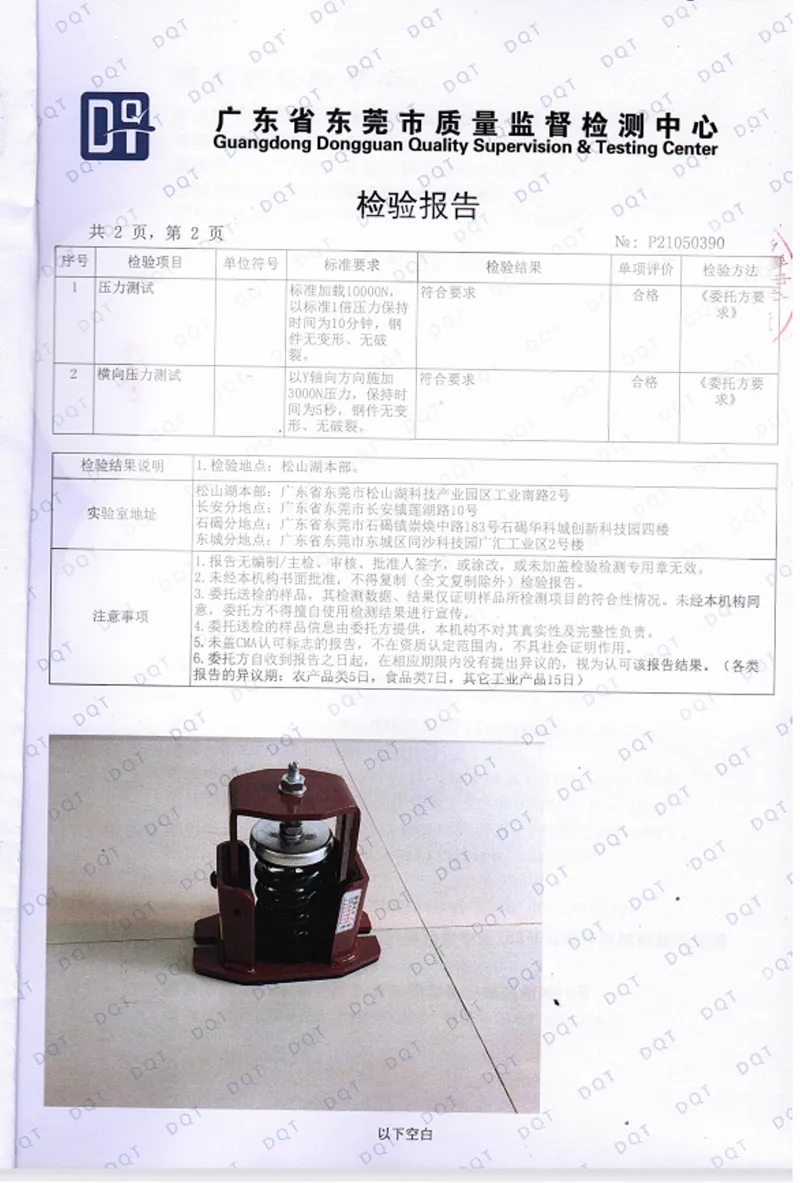 广东省东莞市质量监督检测中心
Guangdong Dongguan Quality Supervision & Testing Center
检验报告
共 2 页，第 2 页
№: P21050390
序号 检验项目 单位符号 标准要求 检验结果 单项评价 检验方法
1 压力测试 - 标准加载10000N，
以标准1倍压力保持
时间为10分钟，钢
件无变形、无破
裂。
符合要求
合格
《委托方要
求》
2 横向压力测试 - 以Y轴向方向施加
3000N压力，保持时
间为5秒，钢件无变
形、无破裂。
符合要求
合格
《委托方要
求》
检验结果说明 1.检验地点：松山湖本部。
实验室地址
松山湖本部：广东省东莞市松山湖科技产业园区工业南路2号
长安分地点：广东省东莞市长安镇莲湖路10号
石碣分地点：广东省东莞市石碣镇崇焕中路183号石碣华科城创新科技园四楼
东城分地点：广东省东莞市东城区同沙科技园广汇工业区2号楼
注意事项
1.报告无编制/主检、审核、批准人签字，或涂改，或未加盖检验检测专用章无效。
2.未经本机构书面批准，不得复制（全文复制除外）检验报告。
3.委托送检的样品，其检测数据、结果仅证明样品所检测项目的符合性情况。未经本机构同
意，委托方不得擅自使用检测结果进行宣传。
4.委托送检的样品信息由委托方提供，本机构不对其真实性及完整性负责。
5.未盖CMA认可标志的报告，不在资质认定范围内，不具社会证明作用。
6.委托方自收到报告之日起，在相应期限内没有提出异议的，视为认可该报告结果。（各类
报告的异议期：农产品类5日，食品类7日，其它工业产品15日）
以下空白
DQT